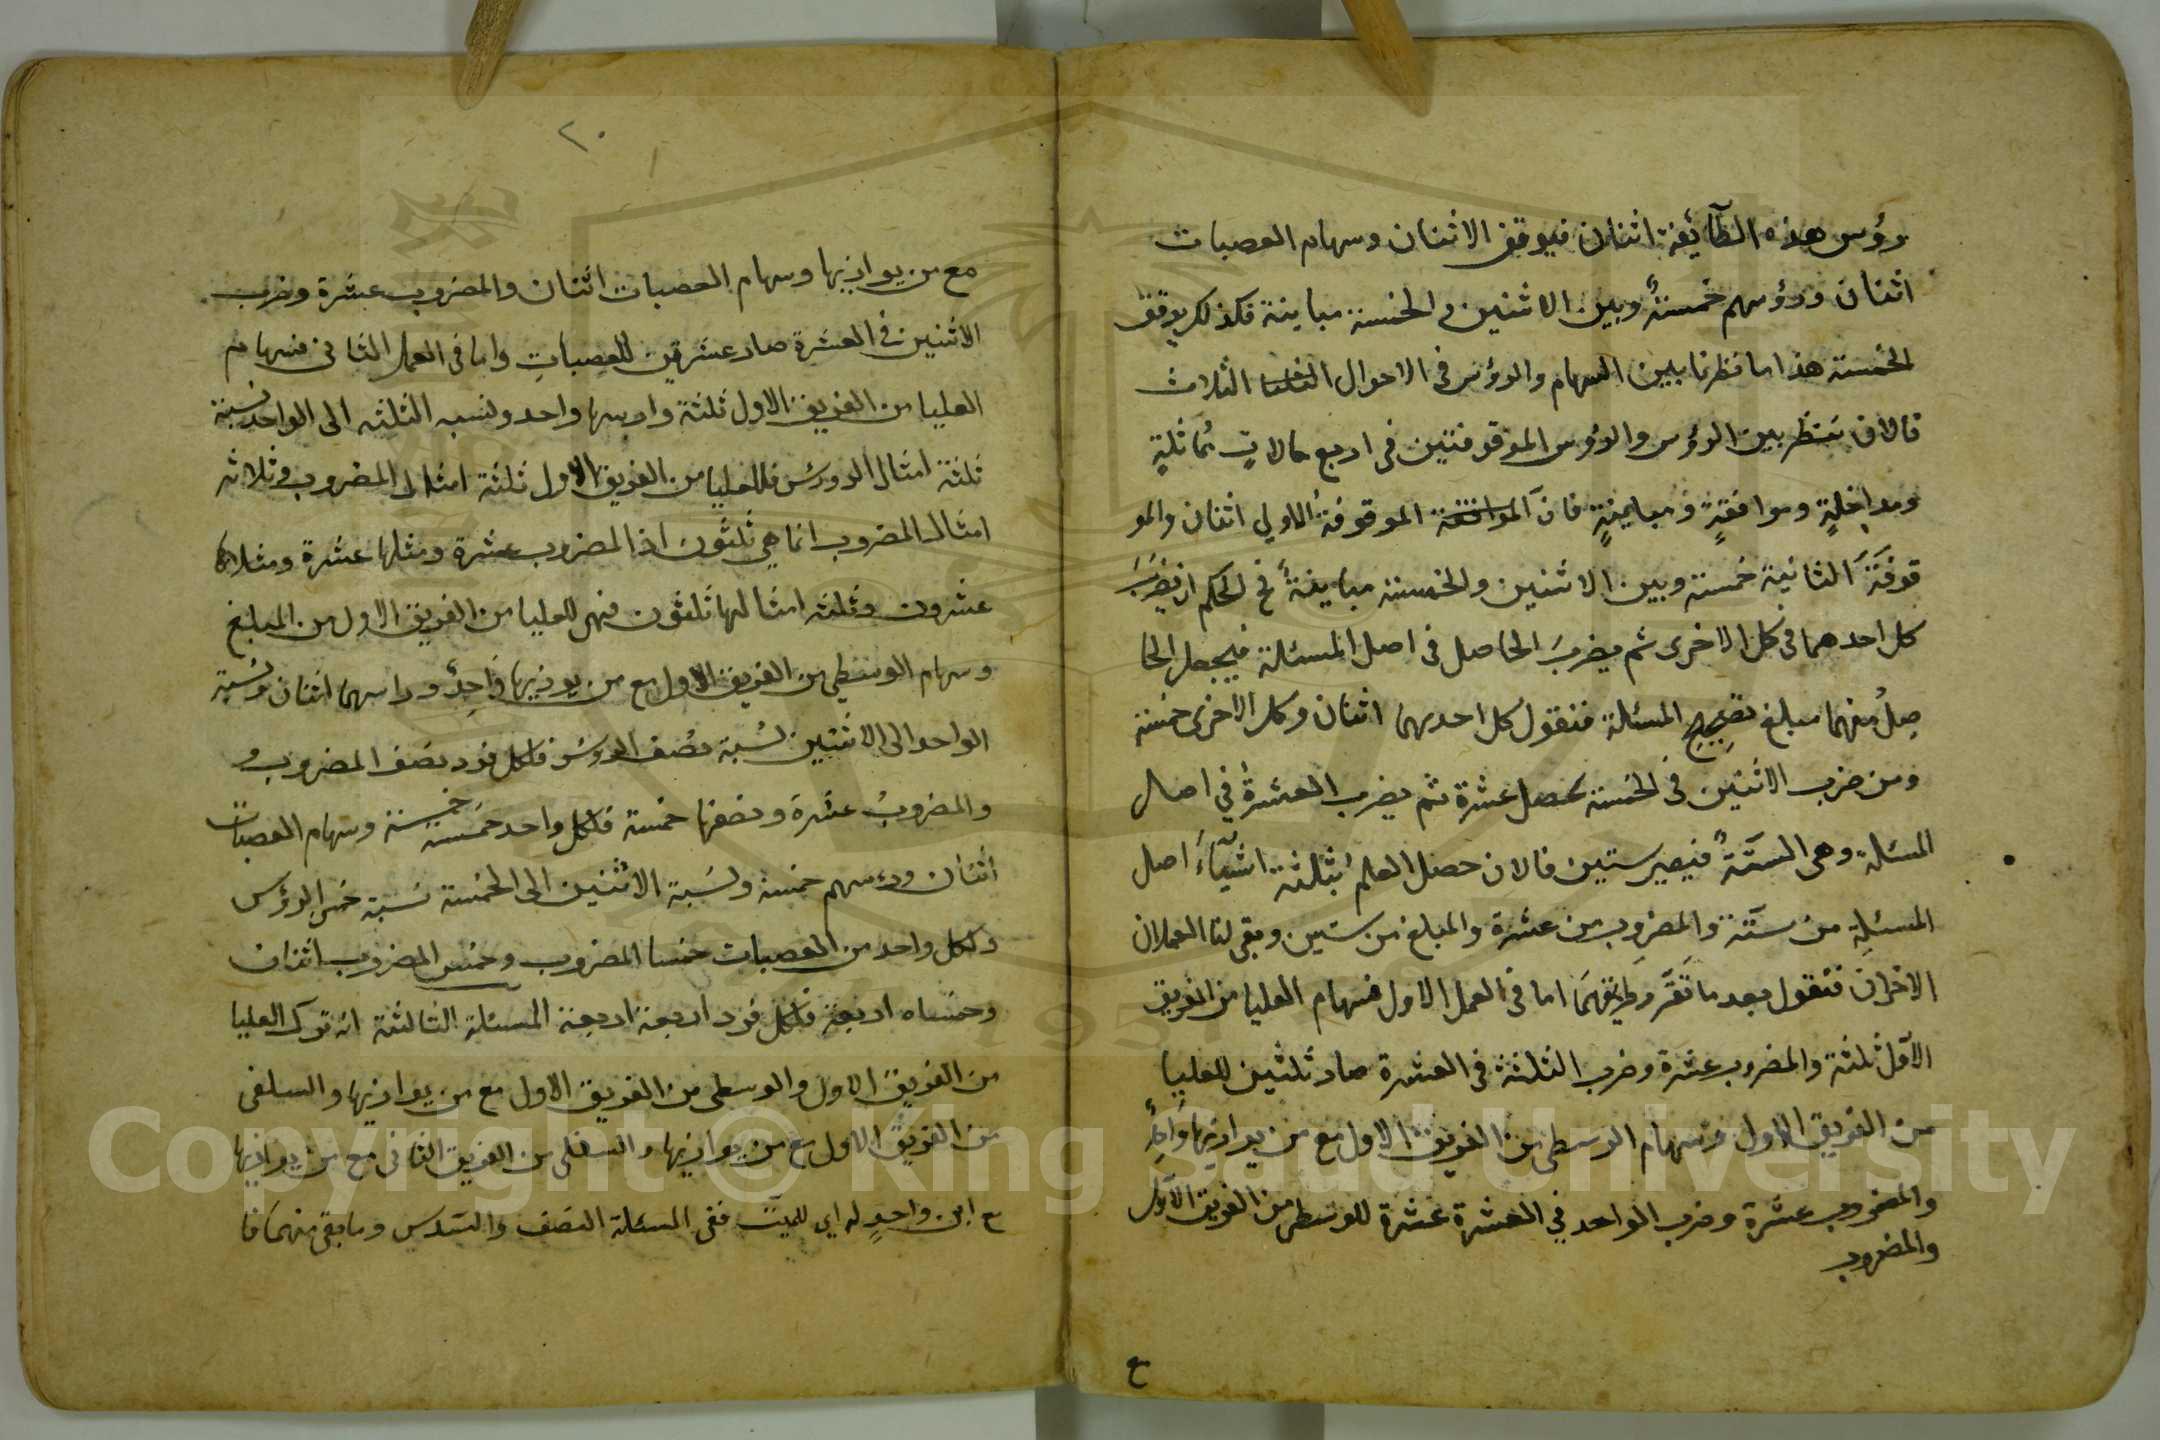 رؤس هذه الطآئفة اثنان فيوقف الاثنان وسهام العصبات
اثنان ورؤسهم خمسةٌ وبين الاثنين والخمسة مباينة فكذلك يوقف
الخمسة هذا ما نظرنا بين السهام والرؤس في الاحوال الثلاث
فالان ننظر بين الرؤس والرؤس الموقوفتين في اربع حالاتٍ مماثلةٍ
ومداخلةٍ وموافقةٍ ومباينةٍ فان الموقوفة الاولي اثنان والمو
قوفَةَ الثانية خمسة وبين الاثنين والخمسة مباينةٌ فح الحكم ان يضرَبَ
كل احدهما في كل الاخرى ثم يضربَ الحاصل في اصل المسئلة فيجعل الحا
صلُ منهما مبلغ تصحيح المسئلة فنقول كل احديهما اثنان وكل الاخرى خمسة
ومن ضرب الاثنين في الخمسة يحصل عشرة ثم يضرب العشرةُ في اصل
المسئلة وهي الستّةُ فيصير ستين فالان حصل العلم بثلثة اشيآءَ اصل
المسئلةِ من ستّة والمضروبِ من عشرة والمبلغ من ستين وبقي لنا العملان
الاخران فنقول بعد ما تَقرَّر طريقهما اما في العمل الاول فسهام العليا من الفريق
الاوّل ثلثة والمضروب عشرة وضرب الثلثة في العشرة صار ثلثين للعليا
من الفريق الاول وسهام الوسطى من الفريق الاول مع من يوازيها واحدٌ
والمضروب عشرة وضرب الواحد في العشرة عشرة للوسطى من الفريق الاوّل
والمضروب
ع
٢٠
مع من يوازيها وسهام العصبات اثنان والمضروب عشرة وضرب
الاثنين في العشرة صار عشرين للعصباتِ واما في العمل الثاني فسهام
العليا من الفريق الاول ثلثة وراسها واحد ونسبه الثلثه الى الواحد نسبة
ثلثة امثال الرؤس فللعليا من الفريق الاول ثلثة امثال المضروب وثلاثه
امثال المضروب انما هي ثلثون اذ المضروب عشرة ومثلها عشرة ومثلاها
عشرون وثلثه امثالها ثلثون فهي للعليا من الفريق الاول من المبلغ
وسهام الوسطى من الفريق الاول مع من يوازيها واحدٌ وراسهما اثنان ونسبة
الواحد الى الاثنين نسبة نصف الرؤس فلكل فرد نصف المضروب و
والمضروبُ عشرة ونصفها خمسة فلكل واحد خمسة خمسة وسهام العصبات
اثنان ورءسهم خمسة ونسبة الاثنين الى الخمسة نسبة خمسي الرؤس
ولكل واحد من العصبات خمسا المضروب وخمس المضروب اثنان
وخمساه اربعة فلكل فرد اربعة اربعة المسئلة الثالثة انه ترك العليا
من الفريق الاول والوسطى من الفريق الاول مع من يوازيها والسلفى
من الفريق الاول مع من يوازيها والسفلى من الفريق الثاني مع من يوازيها
ع ابن واحدٍ له اي للميّت ففي المسئلة النصف والسّدس وما بقي منهما فا